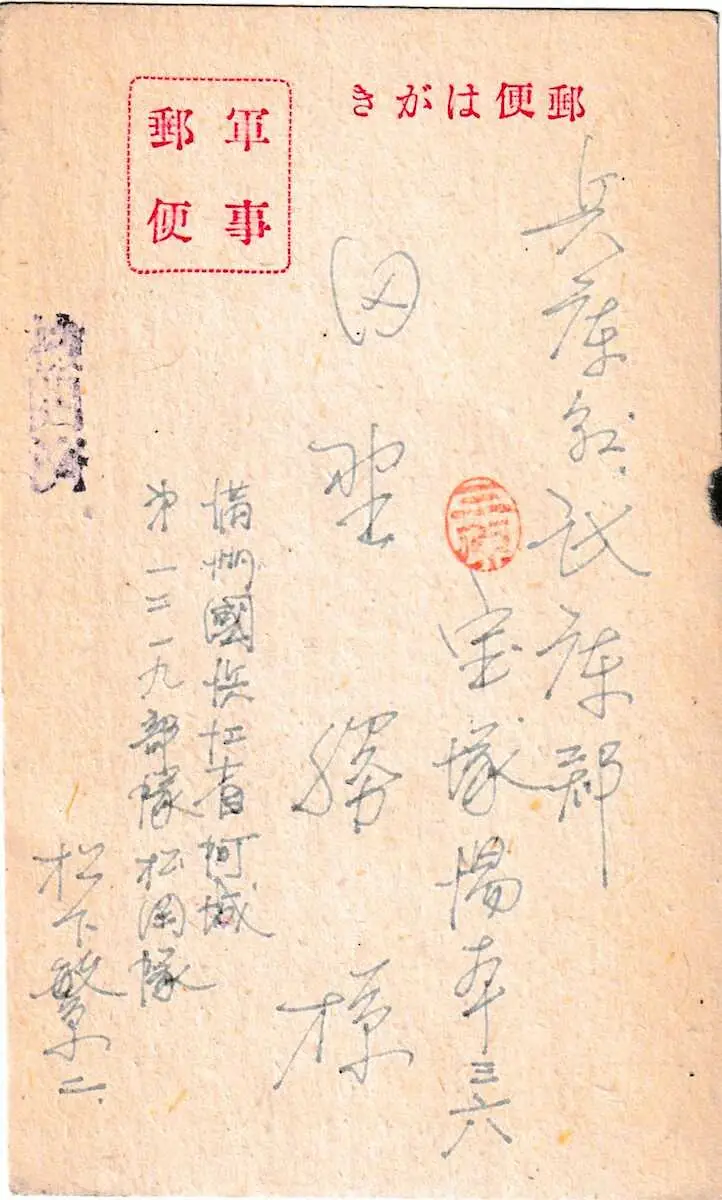 郵便はがき
軍事
郵便
兵庫縣武庫郡
宝塚湯本三六
田埜勝様
満州國浜江省阿城
第一二一九部隊松岡隊
松下繁二
検閲済